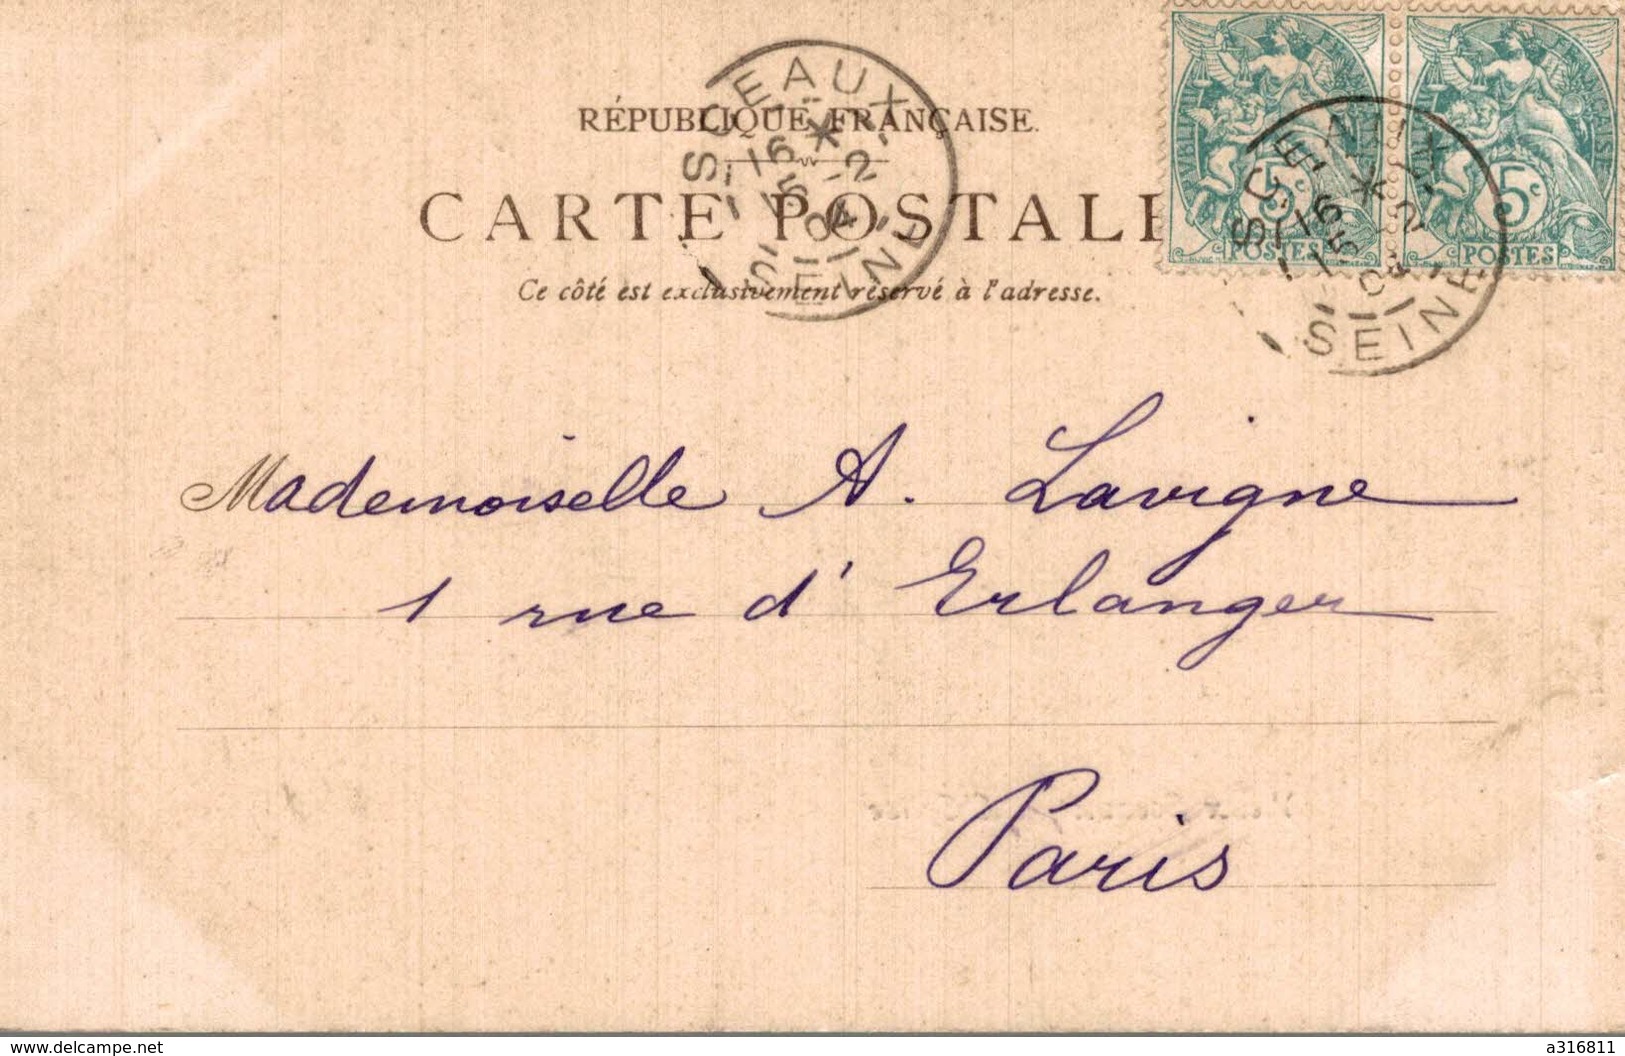 RÉPUBLIQUE FRANÇAISE.
CARTE POSTALE
Ce côté est exclusivement réservé à l'adresse.
SCEAUX
16 * 5 -2 04
SEINE
5c
POSTES
5c
POSTES
SCEAUX
16 * 5 -2 04
SEINE
Mademoiselle A. Lavigne
1 rue d'Erlanger
Paris
www.delcampe.net
a316811